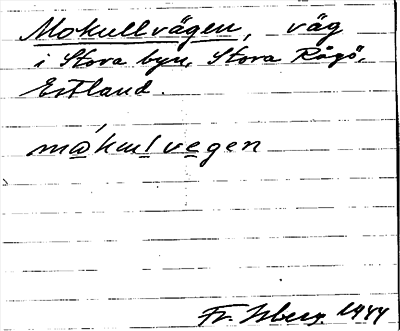 Mokullvägen, väg
i Stora byn, Stora Rågö,
Estland.
mákulvegen
Fr. Isberg 1944